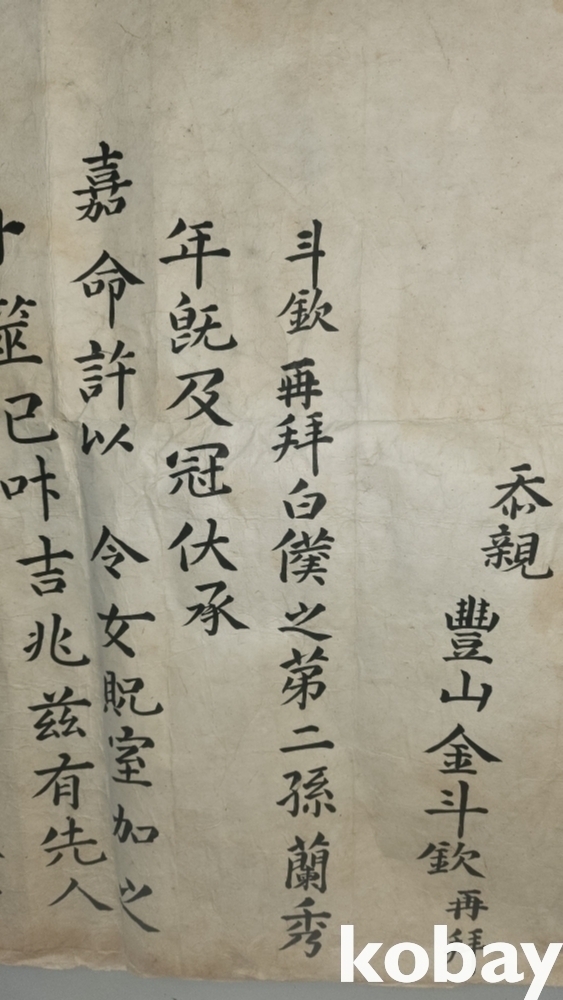 忝親
豐山金斗欽再拜
斗欽再拜白僕之第二孫蘭秀
年旣及冠伏承
嘉命許以 令女貺室加之
卜筮已叶吉兆茲有先人
kobay